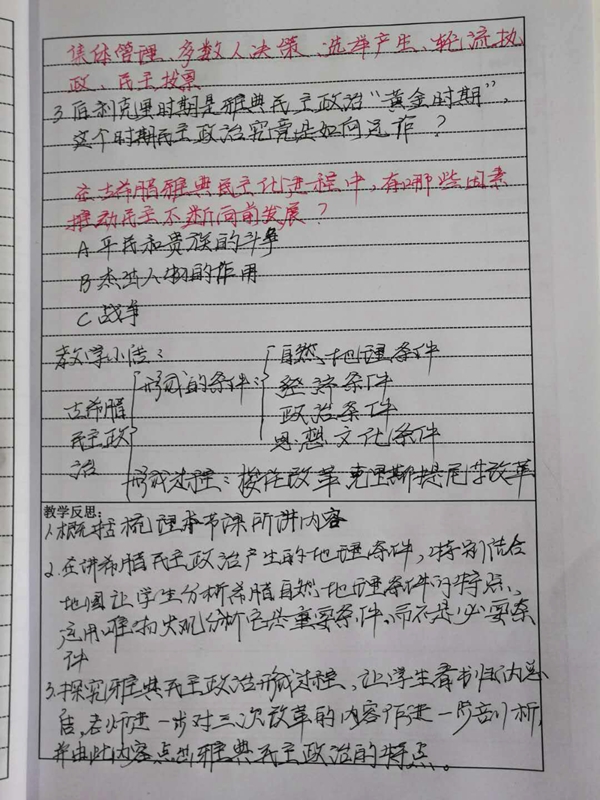 集体管理、多数人决策、选举产生、轮流执
政、民主投票
3.伯利克里时期是雅典民主政治“黄金时期”，
这个时期民主政治究竟是如何运作？
在古希腊雅典民主化进程中，有哪些因素
推动民主不断向前发展？
A 平民和贵族的斗争
B 杰出人物的作用
C 战争
教学小结：
自然地理条件
形成的条件：
经济条件
古希腊
政治条件
民主政
思想文化条件
治
形成过程：梭伦改革 克里斯提尼 改革
教学反思：
1.概括梳理本节课所讲内容
2.在讲希腊民主政治产生的地理条件，特别结合
地图让学生分析希腊自然地理条件的特点、
运用唯物史观分析它是重要条件、而不是必要条
件
3.探究雅典民主政治形成过程、让学生看书归纳总
结，老师进一步对三次改革的内容作进一步剖析，
并由此内容点出雅典民主政治的特点。